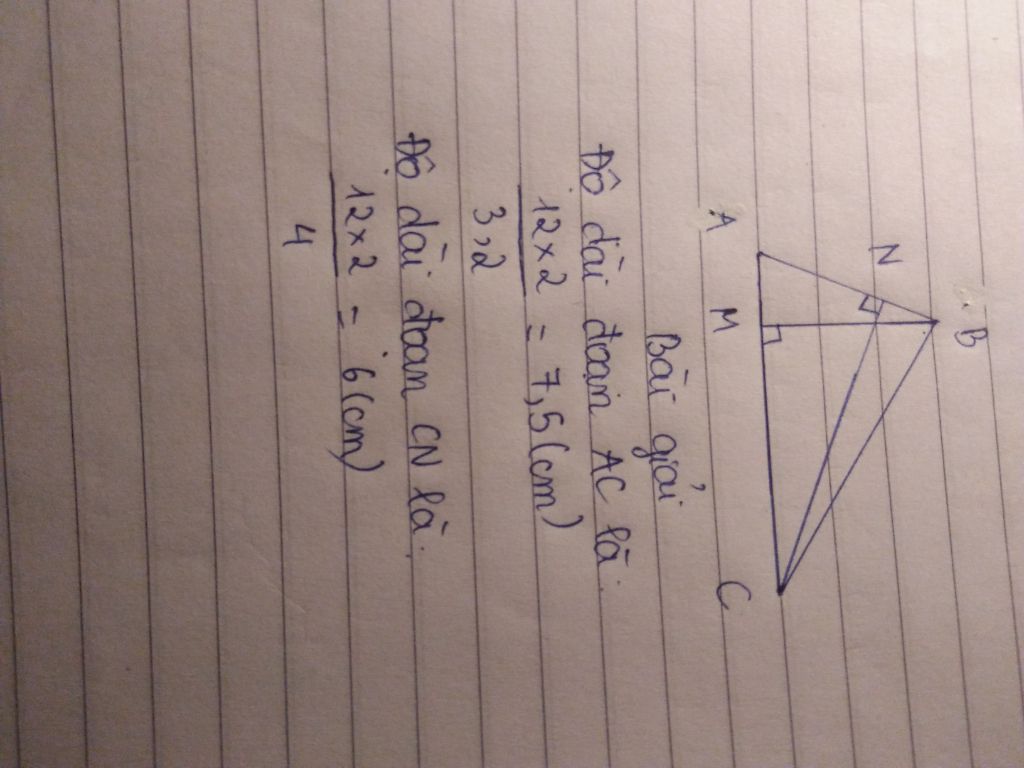 B
N
A M C
Bài giải
Độ dài đoạn AC là:
12 × 2 = 7,5 (cm)
3,2
Độ dài đoạn CN là:
12 × 2 = 6 (cm)
4